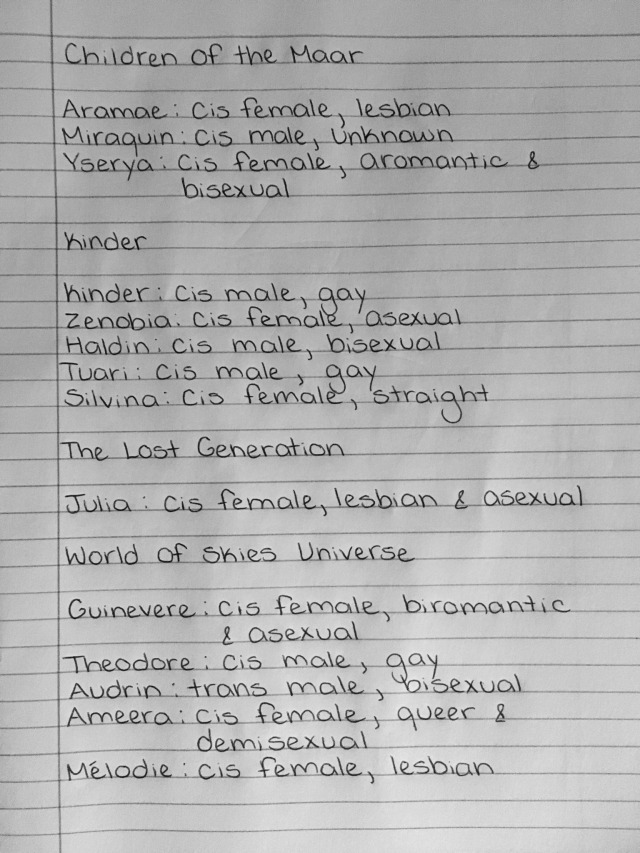 Children of the Maar
Aramae: cis female, lesbian
Miraquin: cis male, unknown
Yserya: cis female, aromantic &
bisexual
Kinder
Kinder: cis male, gay
Zenobia: cis female, asexual
Haldin: cis male, bisexual
Tuari: cis male, gay
Silvina: cis female, straight
The Lost Generation
Julia: cis female, lesbian & asexual
World of Skies Universe
Guinevere: cis female, biromantic
& asexual
Theodore: cis male, gay
Audrin: trans male, bisexual
Ameera: cis female, queer &
demisexual
Mélodie: cis female, lesbian